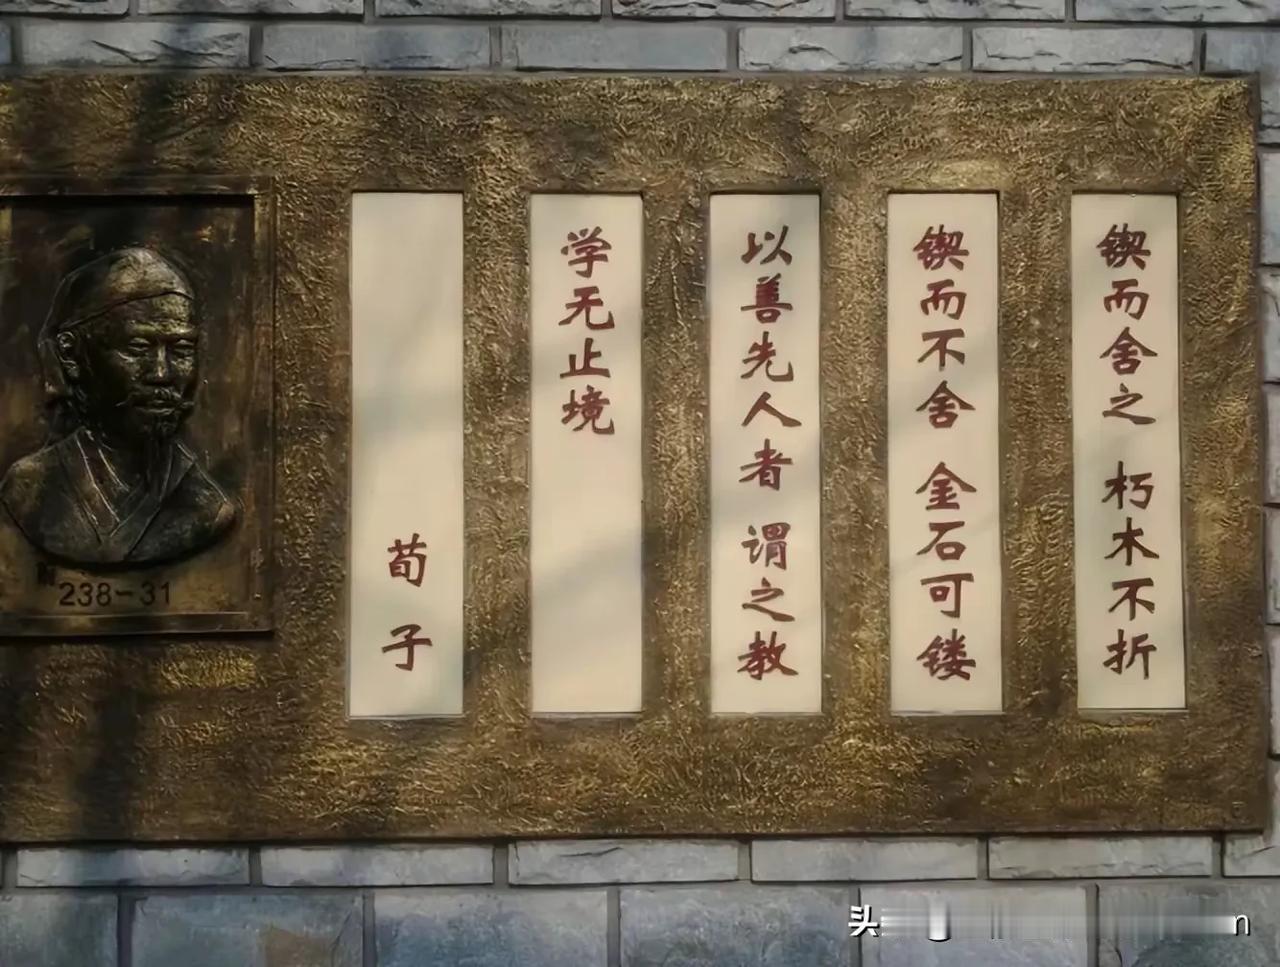 锲而舍之 朽木不折
锲而不舍 金石可镂
以善先人者 谓之教
学无止境
荀子
前238-31
头
n